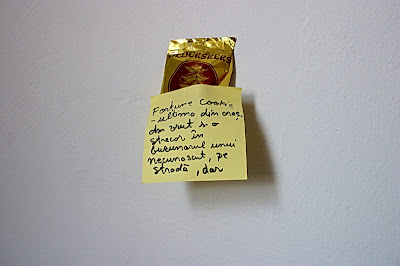 GLÜCKSKEKS
Fortune Cookie
- ultima din oraș.
Am vrut s-o
strecor în
buzunarul unui
necunoscut, pe
stradă, dar